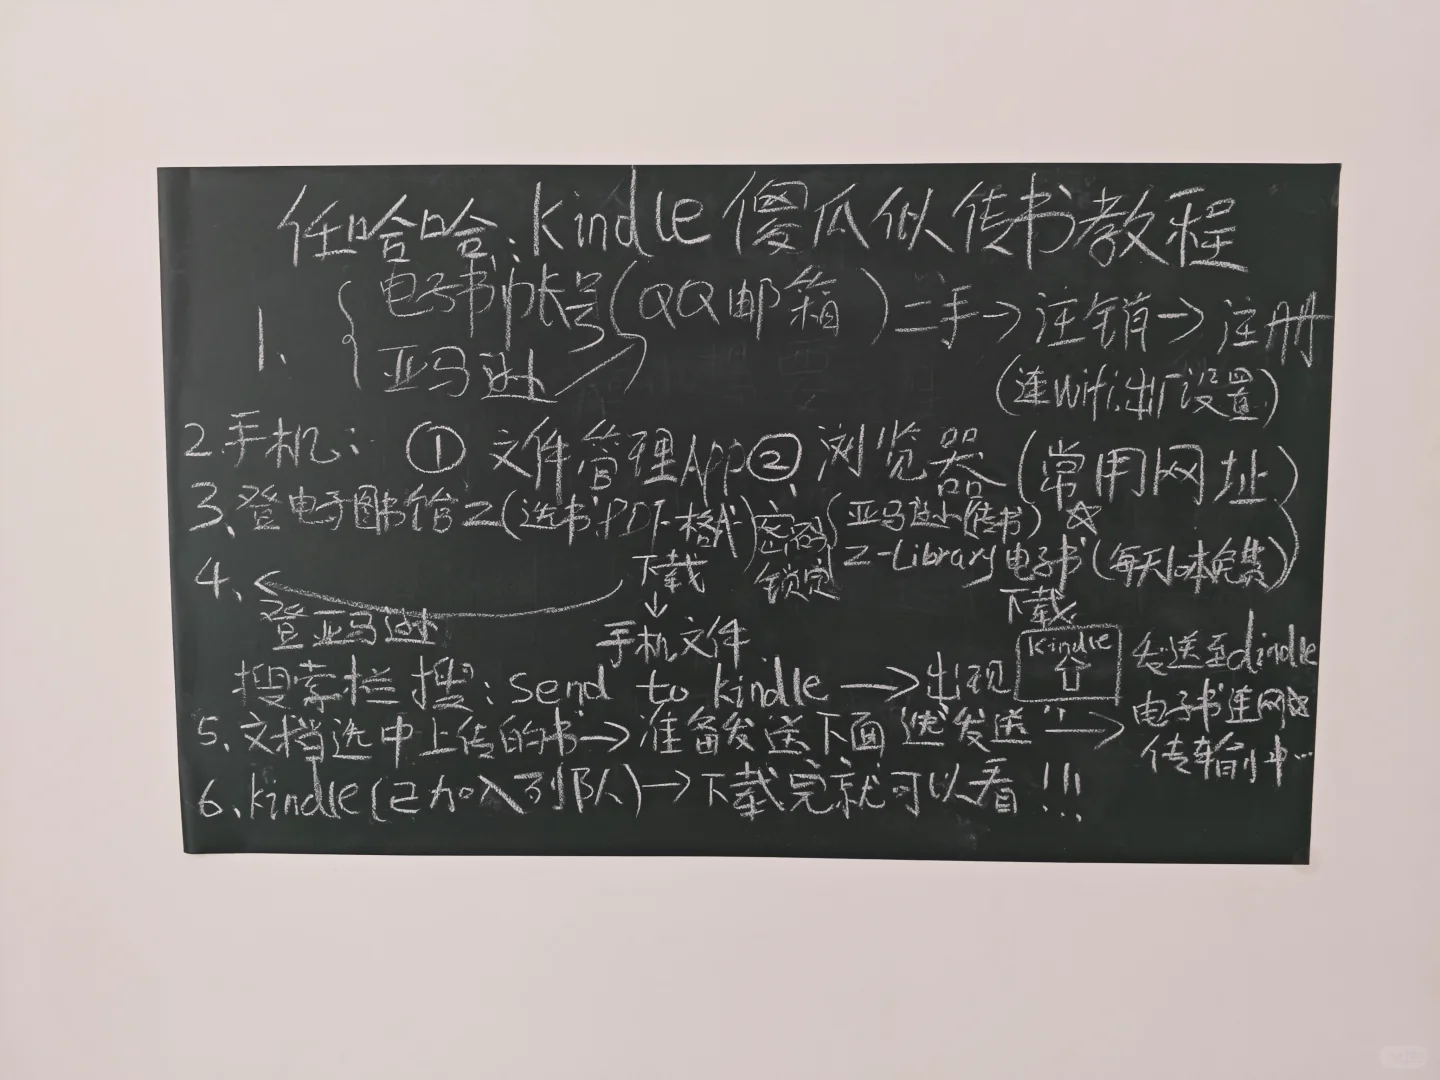 任哈哈:kindle傻瓜似传书教程
1、{电子书帐号(QQ邮箱)二手→注销→注册
亚马逊
(连wifi出厂设置)
2.手机: ①文件管理App②浏览器(常用网址)
3、登电子图书馆Z(选书PDF格式)密码{亚马逊(传书)☆
下载 锁定 Z-Library电子书(每天10本免费)
4、 ↓ 下载
登亚马逊 手机文件
搜索栏搜:Send to kindle→出现 kindle ⇧ 发送至dindle
5、文档选中上传的书→准备发送下面 选"发送"→ 电子书连网☆
传输中…
6、kindle(已加入列队)→下载完就可以看!!!